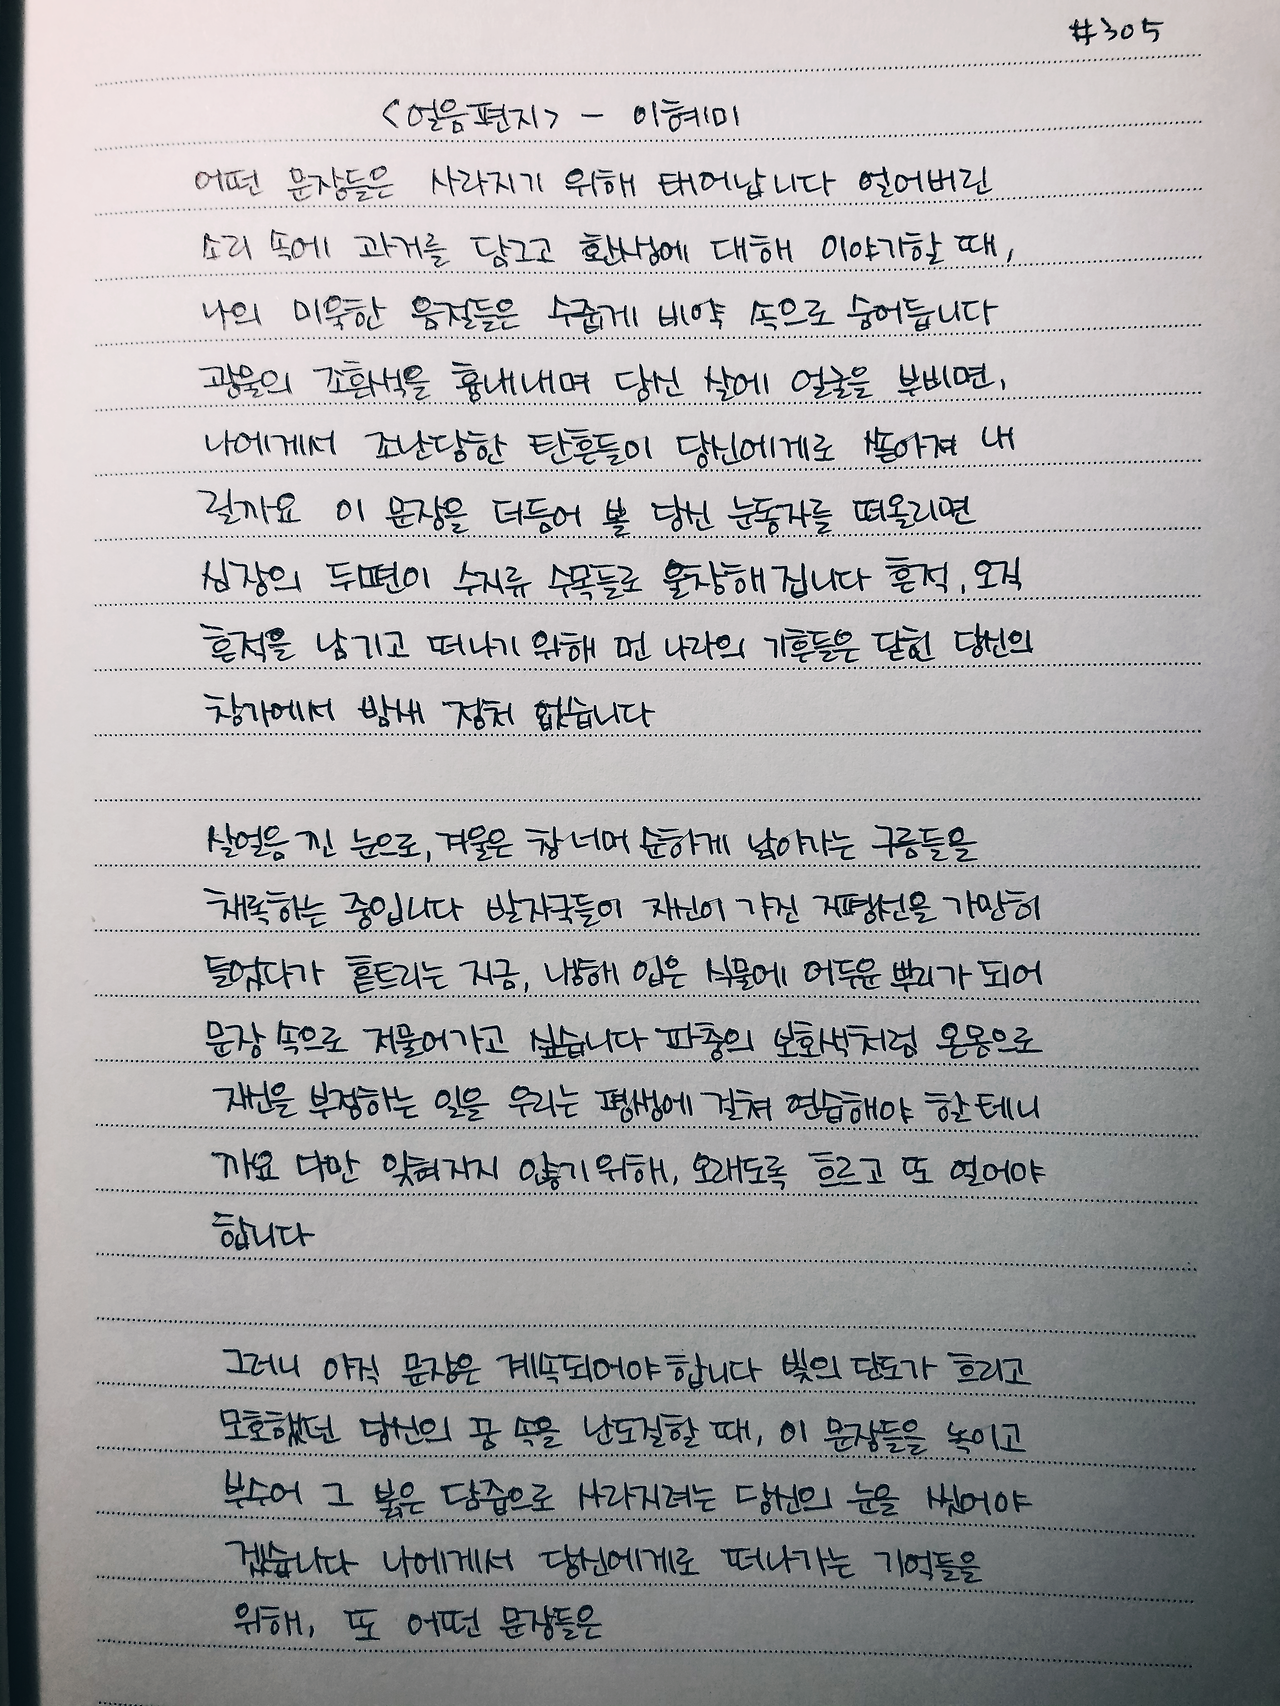 #305
<얼음편지> - 이혜미
어떤 문장들은 사라지기 위해 태어납니다 얼어버린
소리 속에 과거를 담그고 환생에 대해 이야기할 때,
나의 미욱한 음절들은 수줍게 비약 속으로 숨어듭니다
광물의 조흔색을 흉내내며 당신 살에 얼굴을 부비면,
나에게서 조난당한 탄흔들이 당신에게로 쏟아져 내
릴까요 이 문장을 더듬어 볼 당신 눈동자를 떠올리면
심장의 뒤편이 수지류 수목들로 울창해집니다 흔적, 오직
흔적을 남기고 떠나기 위해 먼 나라의 기후들은 닫힌 당신의
창가에서 밤새 정처 없습니다
살얼음 낀 눈으로, 겨울은 창 너머 순하게 낡아가는 구름들을
채록하는 중입니다 발자국들이 자신이 가진 지평선을 가만히
들었다가 흩트리는 지금, 냉해 입은 식물에 어두운 뿌리가 되어
문장 속으로 저물어가고 싶습니다 파충의 보호색처럼 온몸으로
자신을 부정하는 일을 우리는 평생에 걸쳐 연습해야 할테니
까요 다만 잊혀지지 않기 위해, 오래도록 흐르고 또 얼어야
합니다
그러니 아직 문장은 계속되어야 합니다 빛의 단도가 흐리고
모호했던 당신의 꿈 속을 난도질할 때, 이 문장들을 녹이고
부수어 그 붉은 담즙으로 사라지려는 당신의 눈을 씻어야
겠습니다 나에게서 당신에게로 떠나가는 기억들을
위해, 또 어떤 문장들은